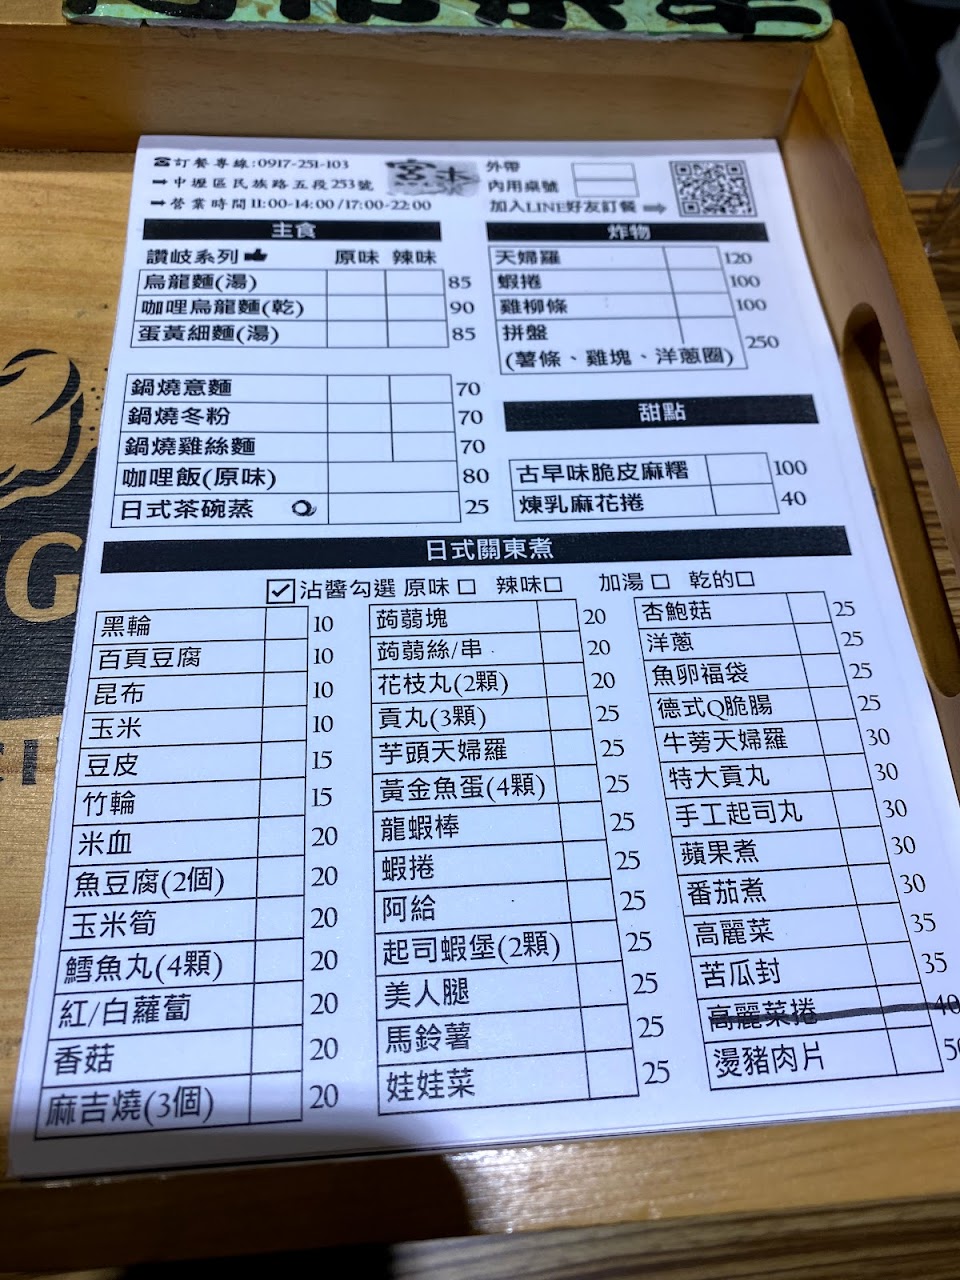 ☎訂餐專線:0917-251-103
➡中壢區民族路五段253號
➡營業時間11:00-14:00/17:00-22:00
宮本
外帶
內用桌號
加入LINE好友訂餐➡
主食
讚岐系列 原味 辣味
烏龍麵(湯) 85
咖哩烏龍麵(乾) 90
蛋黃細麵(湯) 85
鍋燒意麵 70
鍋燒冬粉 70
鍋燒雞絲麵 70
咖哩飯(原味) 80
日式茶碗蒸 25
炸物
天婦羅 120
蝦捲 100
雞柳條 100
拼盤
(薯條、雞塊、洋蔥圈) 250
甜點
古早味脆皮麻糬 100
煉乳麻花捲 40
日式關東煮
☑沾醬勾選 原味□ 辣味□ 加湯□ 乾的□
黑輪 10
百頁豆腐 10
昆布 10
玉米 10
豆皮 15
竹輪 15
米血 20
魚豆腐(2個) 20
玉米筍 20
鱈魚丸(4顆) 20
紅/白蘿蔔 20
香菇 20
麻吉燒(3個) 20
蒟蒻塊 20
蒟蒻絲/串 20
花枝丸(2顆) 20
貢丸(3顆) 25
芋頭天婦羅 25
黃金魚蛋(4顆) 25
龍蝦棒 25
蝦捲 25
阿給 25
起司蝦堡(2顆) 25
美人腿 25
馬鈴薯 25
娃娃菜 25
杏鮑菇 25
洋蔥 25
魚卵福袋 25
德式Q脆腸 25
牛蒡天婦羅 30
特大貢丸 30
手工起司丸 30
蘋果煮 30
番茄煮 30
高麗菜 35
苦瓜封 35
高麗菜捲 40
燙豬肉片 50